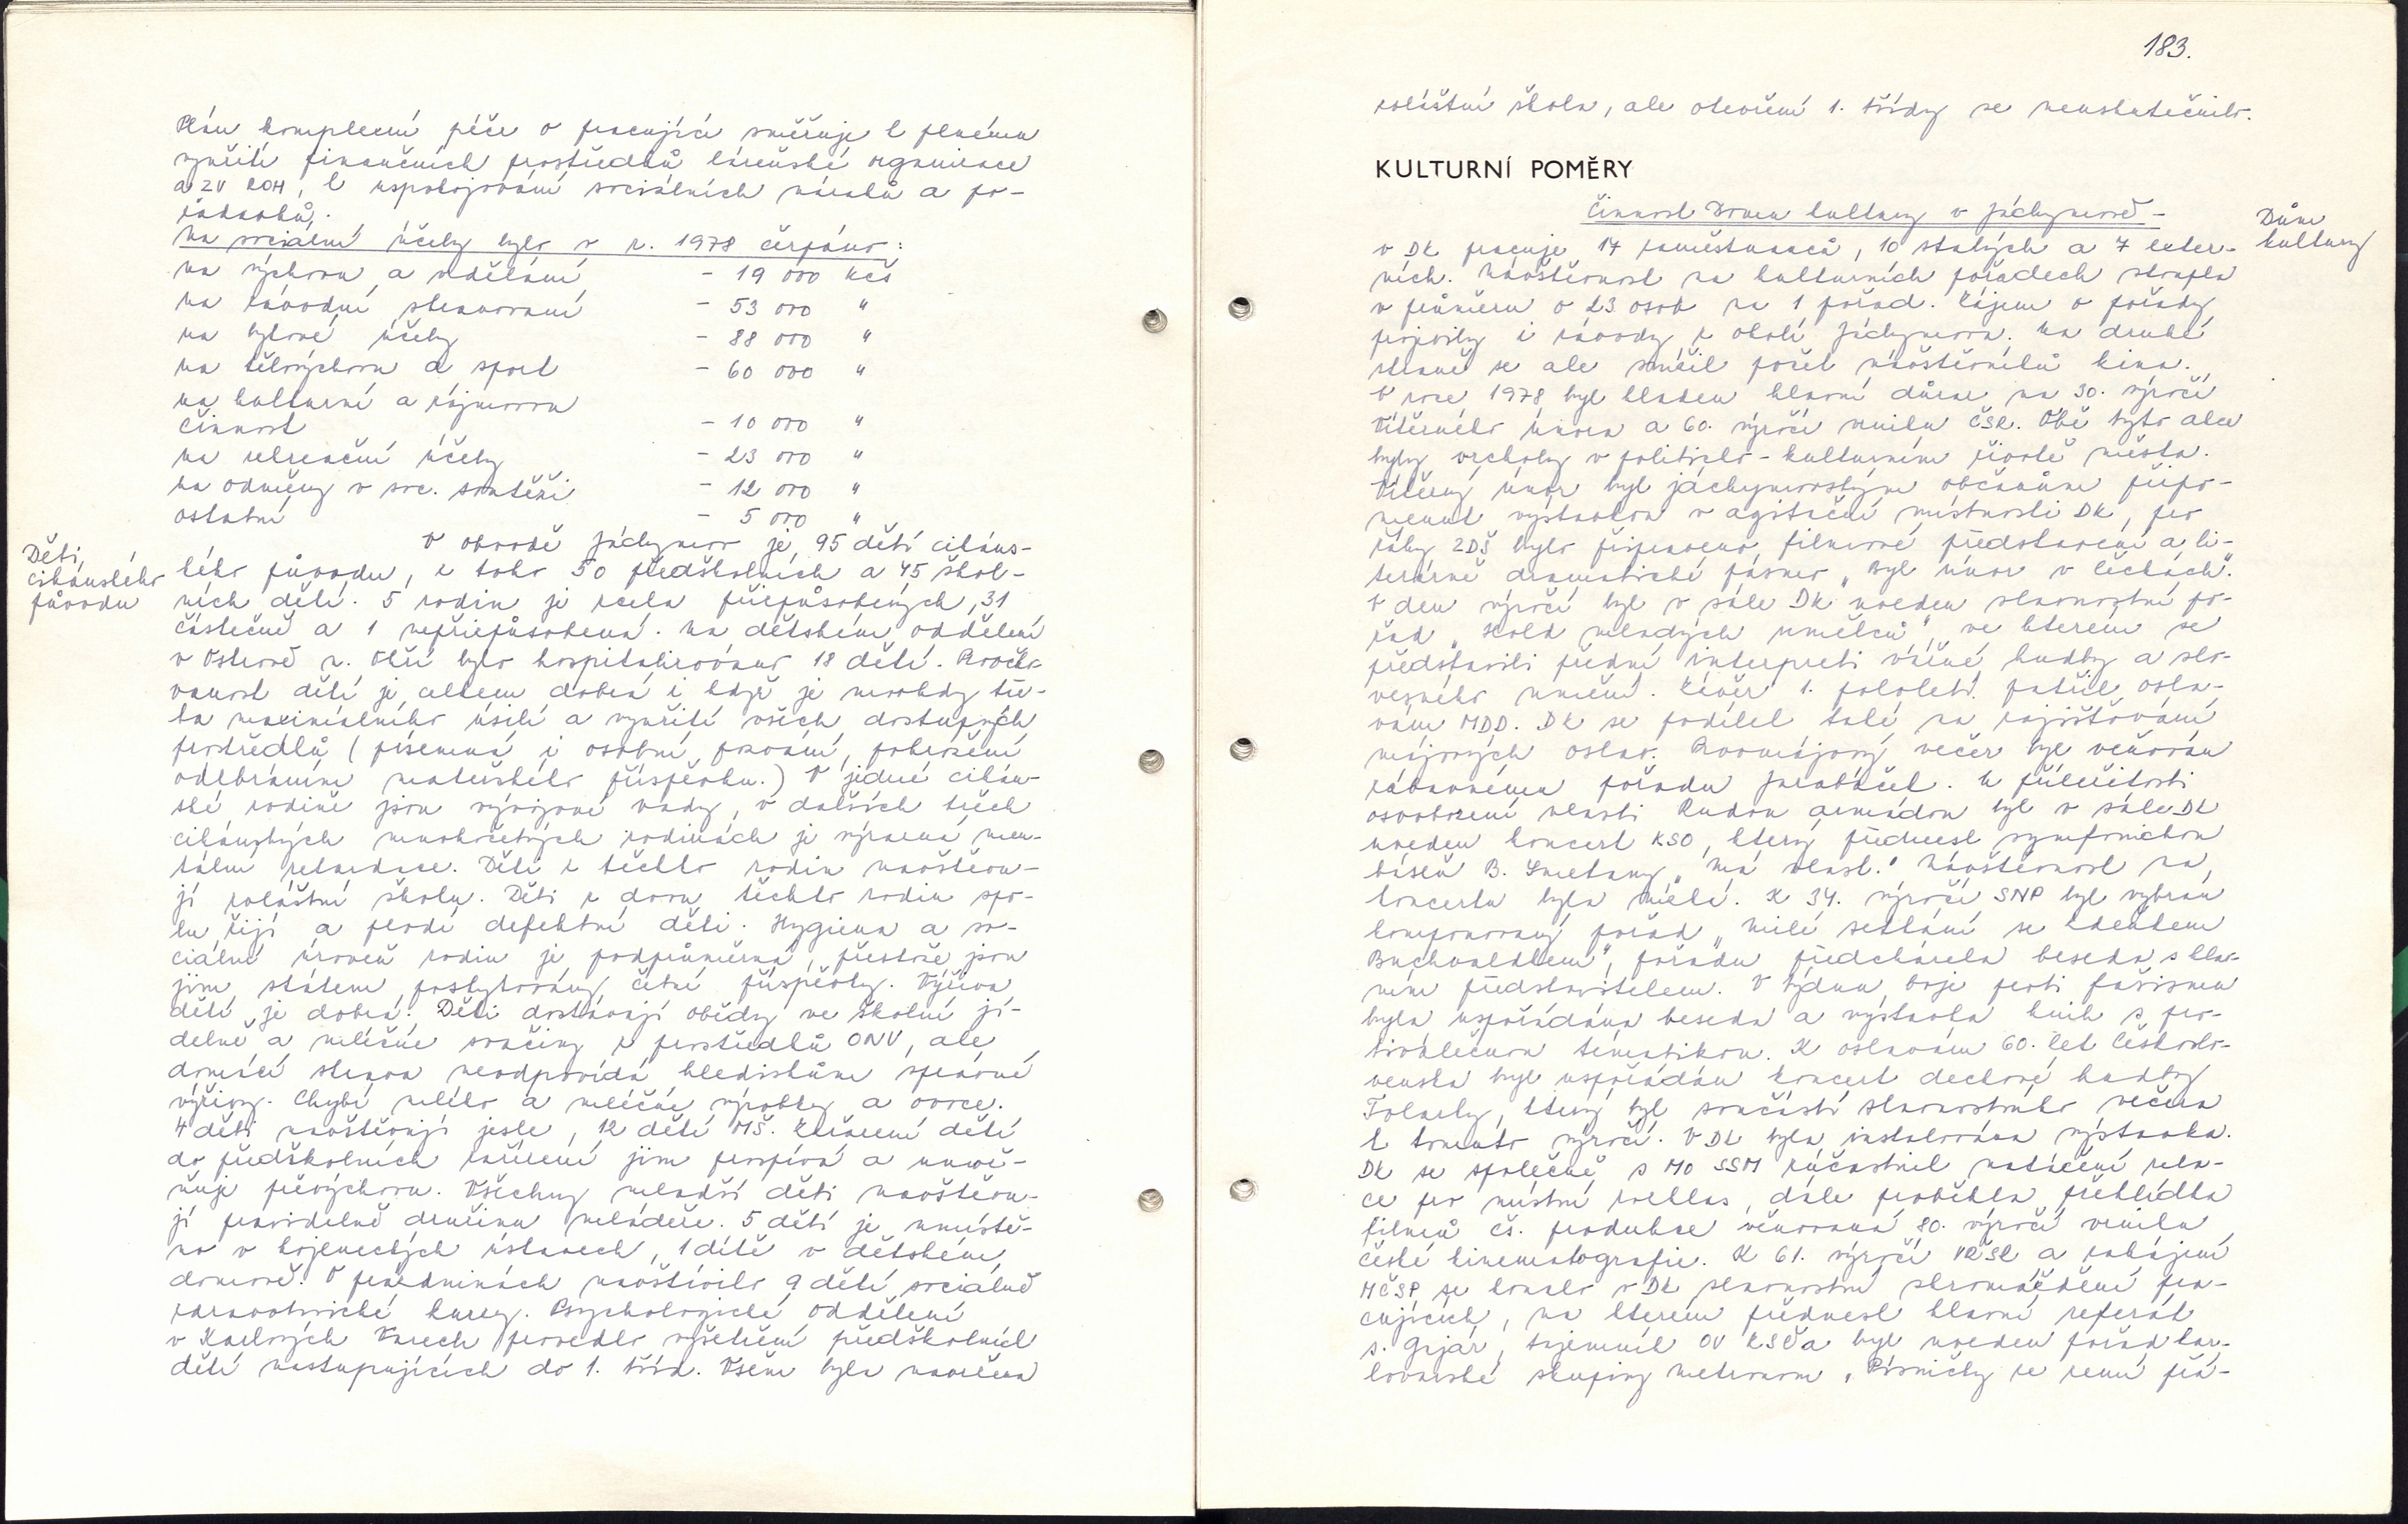 Plán komplexní péče o pracující směřuje k plnému
využití finančních prostředků lázeňské organizace
a ZV ROH, k uspokojování sociálních nároků a po-
žadavků.
Na sociální účely bylo v r. 1978 čerpáno:
na výchovu a vzdělání - 19 000 Kčs
na závodní stravování - 53 000 "
na bytové účely - 88 000 "
na tělovýchovu a sport - 60 000 "
na kulturní a zájmovou
činnost - 10 000 "
na rekreační účely - 23 000 "
na odměny v soc. soutěži - 12 000 "
ostatní - 5 000 "
Děti
cikánského
původu
V obvodě Jáchymov je 95 dětí cikáns-
kého původu, z toho 50 předškolních a 45 škol-
ních dětí. 5 rodin je zcela přizpůsobených, 31
částečně a 1 nepřizpůsobená. Na dětském oddělení
v Ostrově n. Ohří bylo hospitalizováno 18 dětí. Proočko-
vanost dětí je celkem dobrá i když je mnohdy tře-
ba maximálního úsilí a využití všech dostupných
prostředků (písemná i osobní pozvání, pohrození
odebráním mateřského příspěvku.) V jedné cikán-
ské rodině jsou vývojové vady, v dalších třech
cikánských mnohočetných rodinách je výrazná men-
tální retardace. Děti z těchto rodin navštěvu-
jí zvláštní školu. Děti z dvou těchto rodin spo-
lu žijí a plodí defektní děti. Hygiena a so-
ciální úroveň rodin je podprůměrná, přestože jsou
jim státem poskytovány četné příspěvky. Výživa
dětí je dobrá. Děti dostávají obědy ve školní jí-
delně a mléčné svačiny z prostředků ONV, ale
domácí strava neodpovídá hlediskům správné
výživy. Chybí mléko a mléčné výrobky a ovoce.
4 děti navštěvují jesle, 12 dětí MŠ. Zařazení dětí
do předškolních zařízení jim prospívá a umož-
ňuje převýchovu. Všechny mladší děti navštěvu-
jí pravidelně družinu mládeže. 5 dětí je umístě-
no v kojeneckých ústavech, 1 dítě v dětském
domově. O prázdninách navštívilo 9 dětí sociálně
zdravotnické kurzy. Psychologické oddělení
v Karlových Varech provedlo vyšetření předškolních
dětí nastupujících do 1. tříd. Všem byla navržena
183.
zvláštní škola, ale otevření 1. třídy se neuskutečnilo.
KULTURNÍ POMĚRY
Činnost Domu kultury v Jáchymově -
Dům
kultury
v DK pracuje 17 zaměstnanců, 10 stalých a 7 exter-
ních. Návštěvnost na kulturních pořadech stoupla
v průměru o 23 osob na 1 pořad. Zájem o pořady
projevily i závody z okolí Jáchymova. Na druhé
straně se ale snížil počet návštěvníků kina.
V roce 1978 byl kladen hlavní důraz na 30. výročí
Vítězného února a 60. výročí vzniku ČSR. Obě tyto akce
byly vrcholy v politicko-kulturním životě města.
Vítězný únor byl jáchymovským občanům připo-
menut výstavkou v agitační místnosti DK, pro
žáky ZDŠ bylo připraveno filmové představení a li-
terárně dramatické pásmo "Byl únor v Čechách".
V den výročí byl v sále DK uveden slavnostní po-
řad "Hold mladých umělců", ve kterém se
představili přední interpreti vážné hudby a slo-
vesného umění. Závěr 1. pololetí patřil osla-
vám MDD. DK se podílel také na zajišťování
májových oslav. Prvomájový večer byl věnován
zábavnému pořadu Jarabáček. K příležitosti
osvobození vlasti Rudou armádou byl v sále DK
uveden koncert KSO, který přednesl symfonickou
báseň B. Smetany "Má vlast." Návštěvnost na
koncertu byla malá. K 34. výročí SNP byl vybrán
komponovaný pořad "Milé setkání se Zdeňkem
Buchvaldkem", pořadu předcházela beseda s hlav-
ním představitelem. V týdnu boje proti fašismu
byla uspořádána beseda a výstavka knih s pro-
tiválečnou tématikou. K oslavám 60. let Českoslo-
venska byl uspořádán koncert dechové hudby
Tolnely, který byl součástí slavnostního večera
k tomuto výročí. V DK byla instalována výstavka.
DK se společně s MO SSM zúčastnil natáčení rela-
ce pro místní rozhlas, dále proběhla přehlídka
filmů čs. produkce věnovaná 80. výročí vzniku
české kinematografie. K 61. výročí VŘSR a zahájení
MČSP se konalo v DK slavnostní shromáždění pra-
cujících, na kterém přednesl hlavní referát
s. Grjár, tajemník OV KSČ a byl uveden pořad kar-
lovarské skupiny Metronom "Písničky ze země prá-